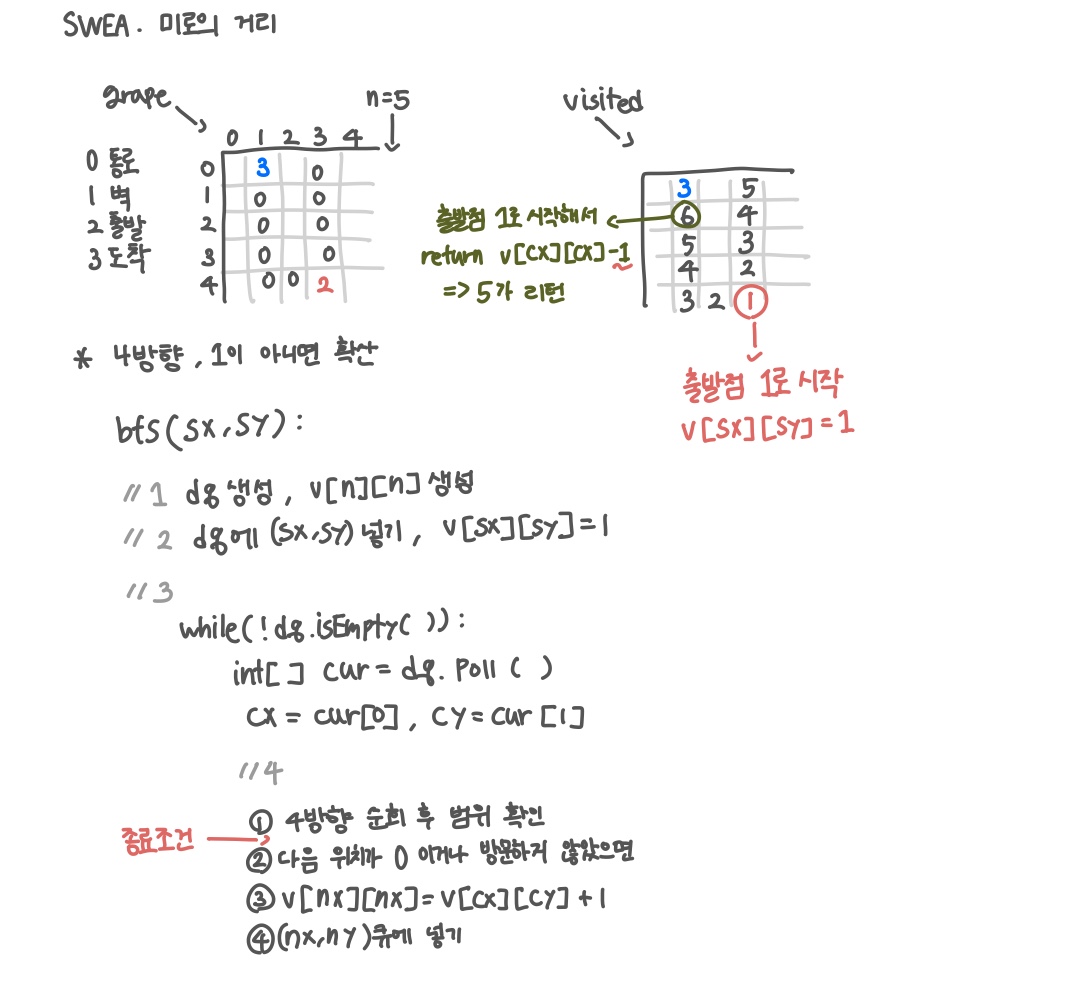 SWEA. 미로의 거리
grape
n=5
visited
0 1 2 3 4
0 통로
1 벽
2 출발
3 도착
0 3 0
1 0 0
2 0 0
3 0 0
4 0 0 2
3 5
6 4
5 3
4 2
3 2 1
출발점 1로 시작해서
return v[cx][cx]-1
=> 5가 리턴
출발점 1로 시작
v[sx][sy]=1
* 4방향, 1이 아니면 확산
bfs(sx,sy):
// 1 dq 생성, v[n][n] 생성
// 2 dq에 (sx,sy) 넣기, v[sx][sy]=1
// 3
while(!dq.isEmpty( )):
int[ ] cur = dq. poll ( )
cx = cur[0], cy=cur [1]
// 4
종료조건
① 4방향 순회 후 범위 확인
② 다음 위치가 0 이거나 방문하지 않았으면
③ v[nx][nx]=v[cx][cy]+1
④ (nx,ny)큐에 넣기